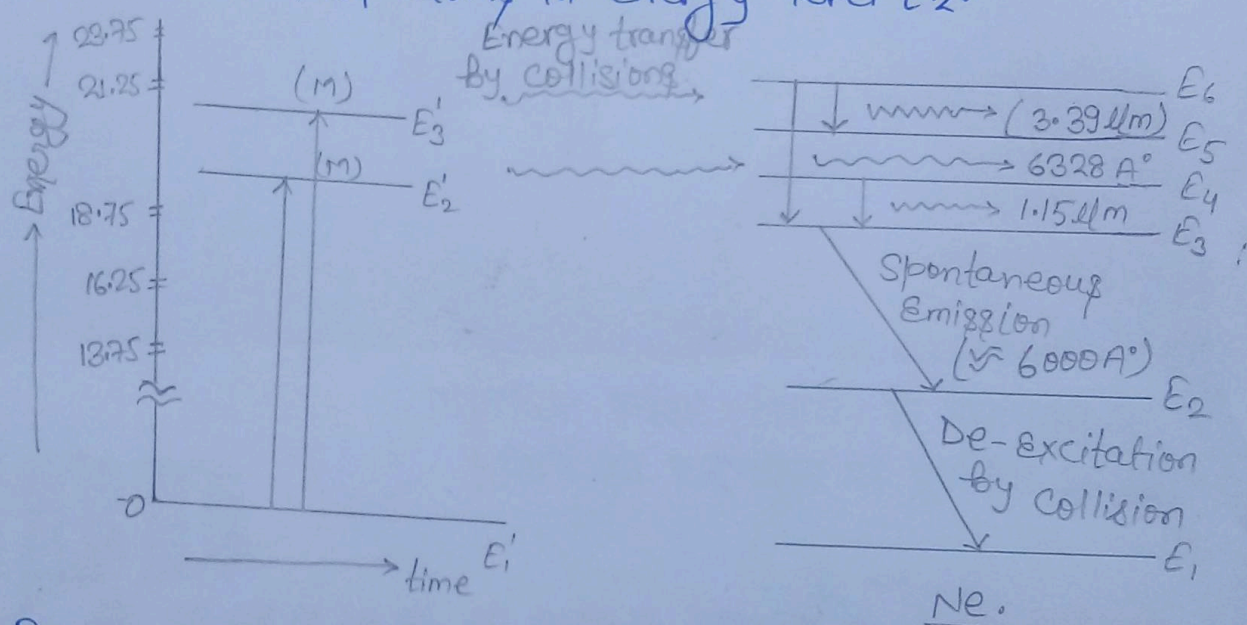 energy level E2.
Energy transfer
by collisions
Energy
23.75
21.25
18.75
16.25
13.75
0
(M)
E3'
(M)
E2'
E1'
time
E6
(3.39 μm)
E5
6328 A°
E4
1.15 μm
E3
Spontaneous
Emission
(≈ 6000 A°)
E2
De-excitation
by Collision
E1
Ne.